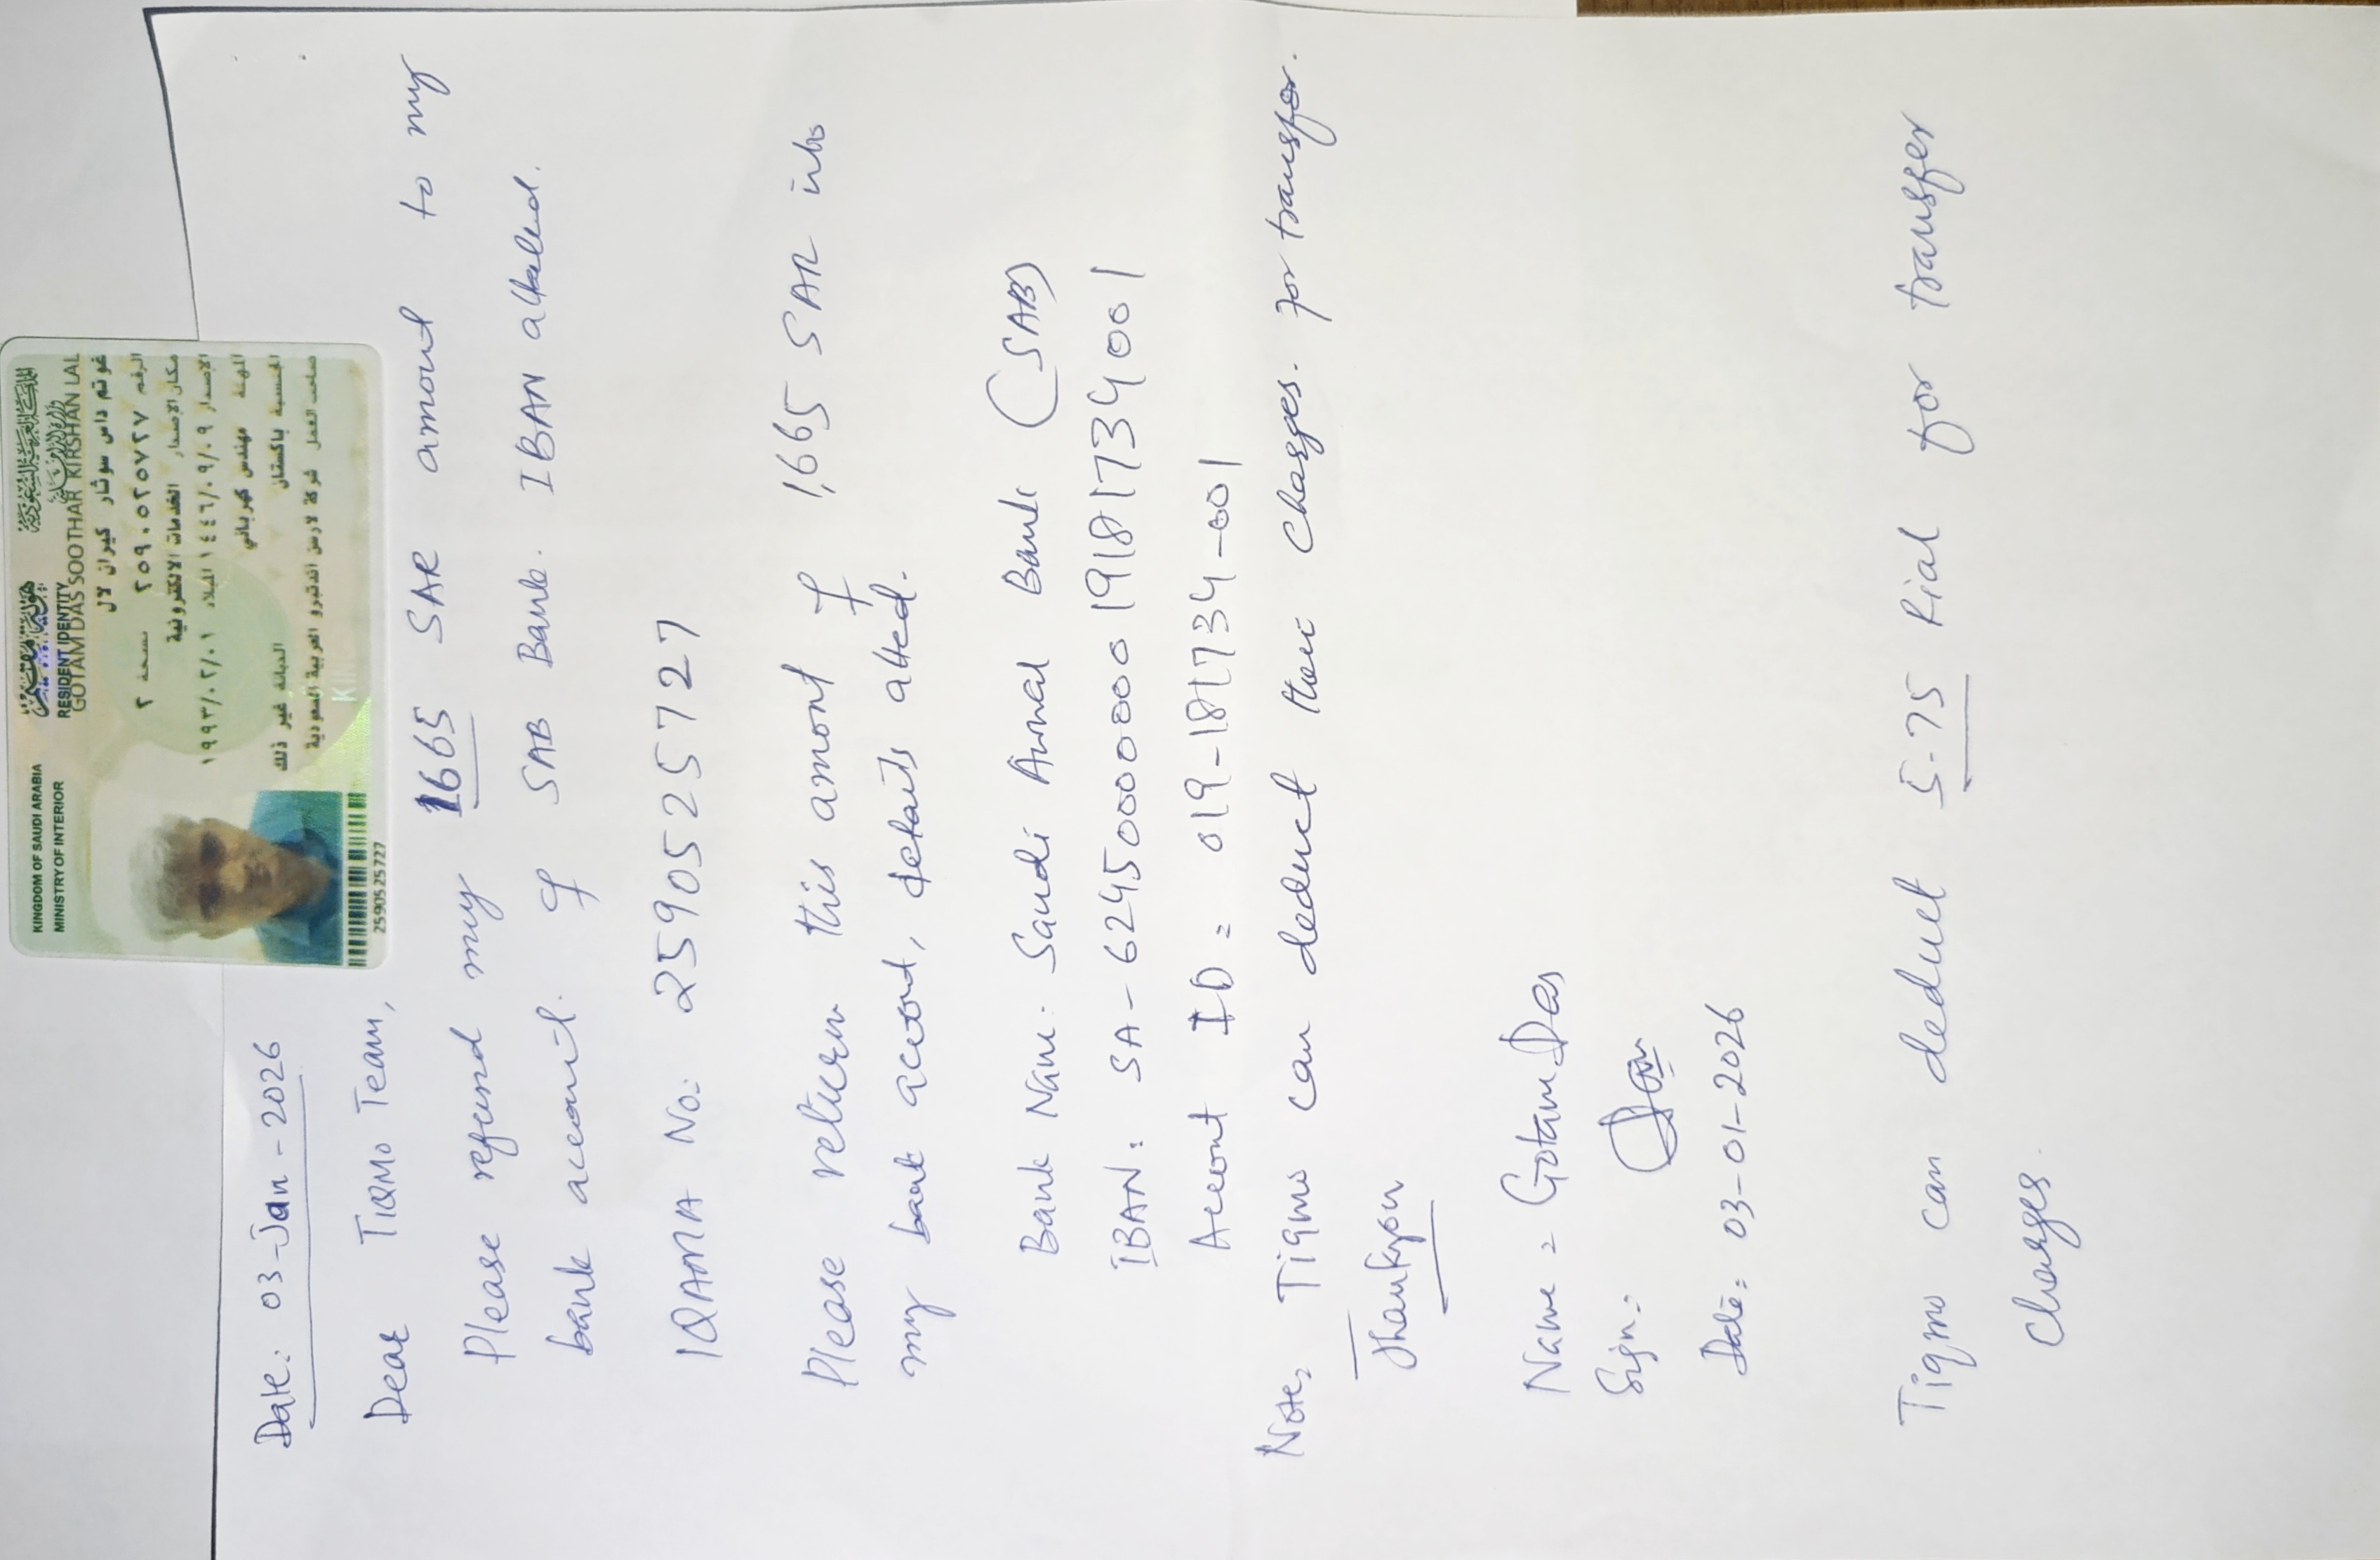 KINGDOM OF SAUDI ARABIA
MINISTRY OF INTERIOR
RESIDENT IDENTITY
GOTAM DAS SOOTHAR KIRSHAN LAL
غوتم داس سوثار كيران لال
الرقم ٢٥٩٠٥٢٥٧٢٧ نسخة ٢
مكان الإصدار الخدمات الالكترونية
الإصدار ١٤٤٦/٠٩/٠٩ الميلاد ١٩٩٣/٠٢/٠١
المهنة مهندس كهربائي
الجنسية باكستان الديانة غير ذلك
صاحب العمل
2590525727
Date: 03-Jan-2026
Dear TIQMO Team,
Please refund my 1665 SAR amount to my
bank account. of SAB Bank. IBAN attached.
IQAMA No: 2590525727
Please return this amont of 1,665 SAR into
my bank accont, details atted.
Bank Name: Saudi Awwal Bank (SAB)
Account ID = 019-181734-001
Note, Tiqmo can deduct their charges. for transfer.
Thankyou
Name = Gotam Das
Sign:
Date: 03-01-2026
Tiqmo can deduct 5-75 Rial for transfer
charges.